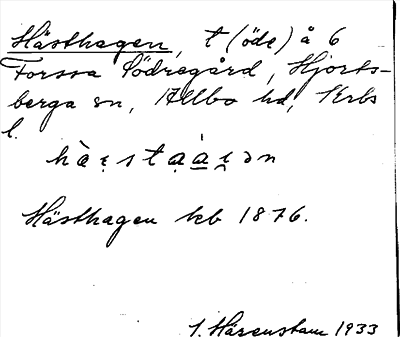 Hästhagen, t (öde) å 6
Forssa Södregård, Hjorts-
berga sn, Allbo hd, Krbs
l.
Hästhagen kb 1876.
J. Härenstam 1933